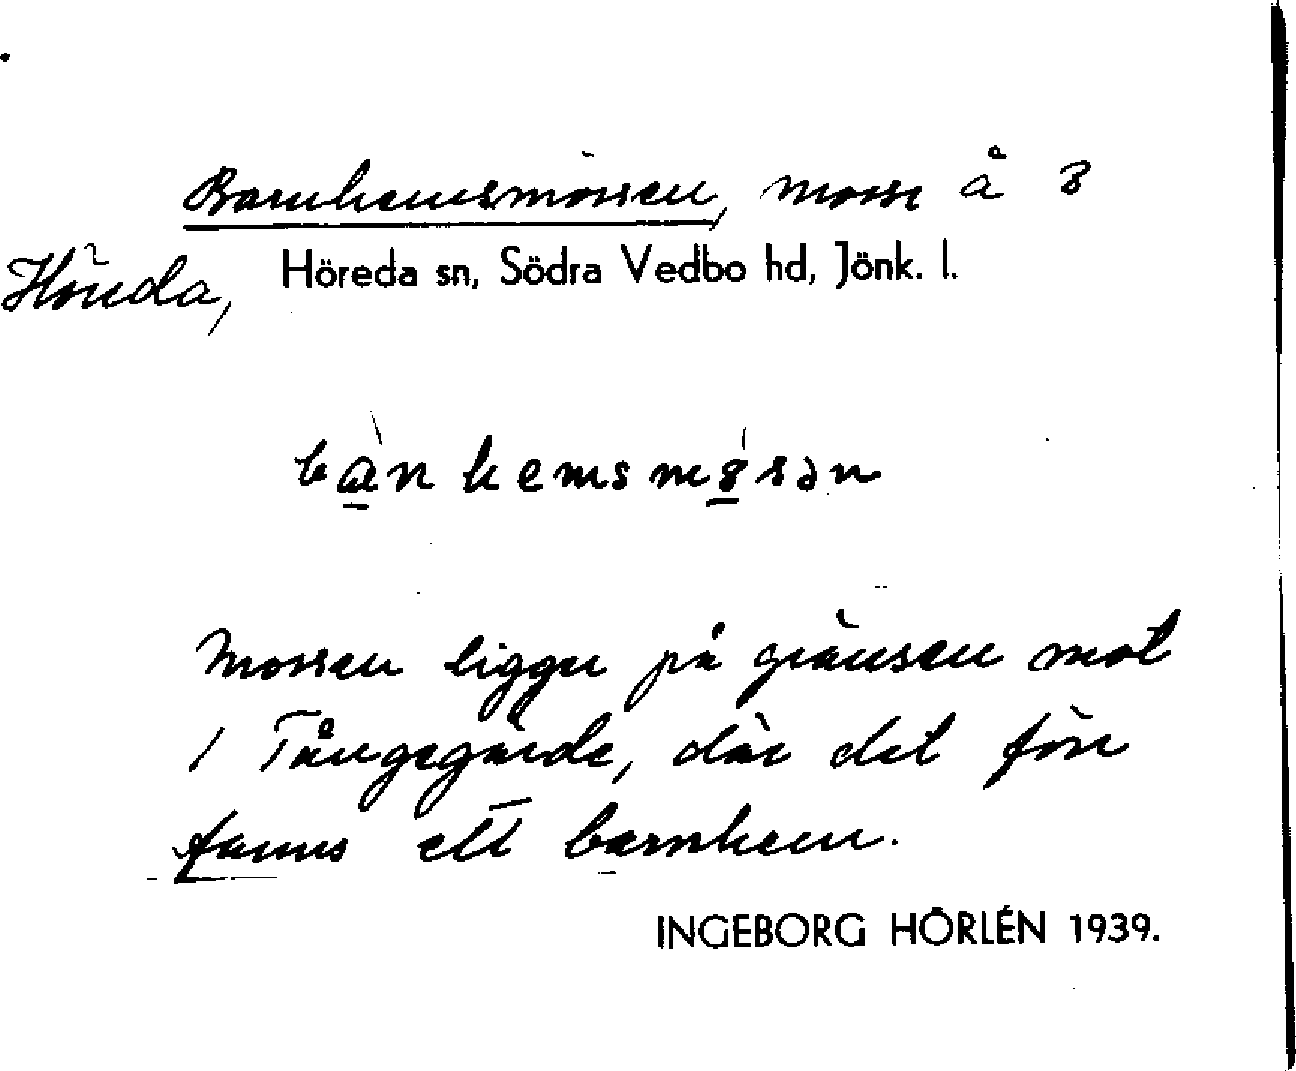 Barnhemsmossen, mosse å 8
Höreda, Höreda sn, Södra Vedbo hd, Jönk. l.
bànhemsmósən
Mossen ligger på gränsen mot
/ Tångegärde, där det förr
fanns ett barnhem.
INGEBORG HÖRLÉN 1939.